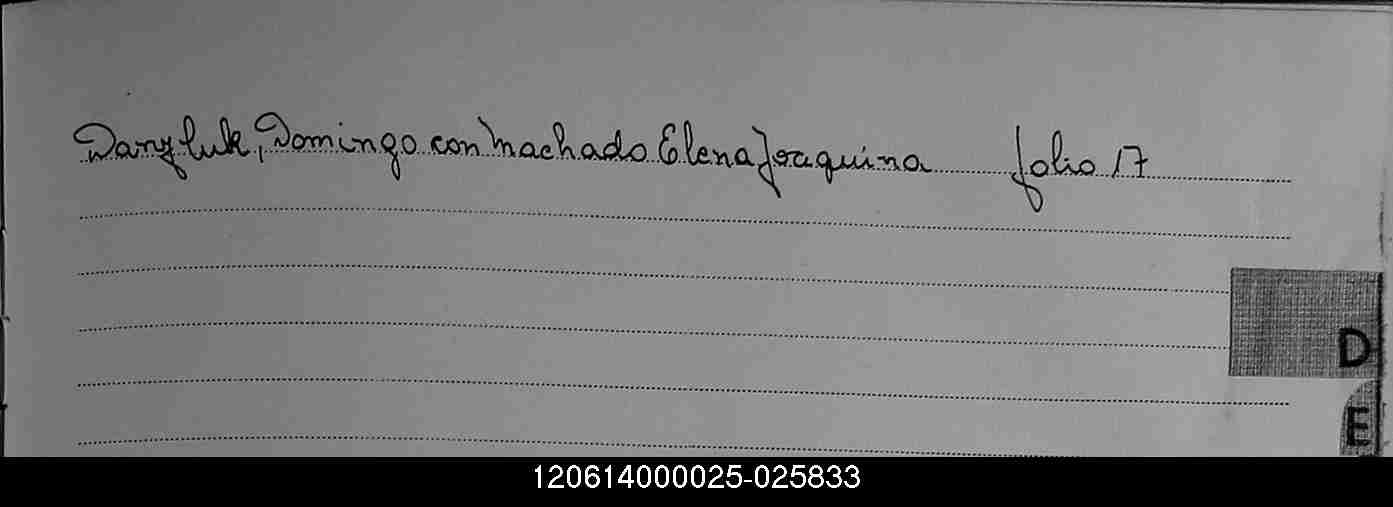 Danyluk, Domingo con Machado Elena Joaquina folio 17
D
E
120614000025-025833